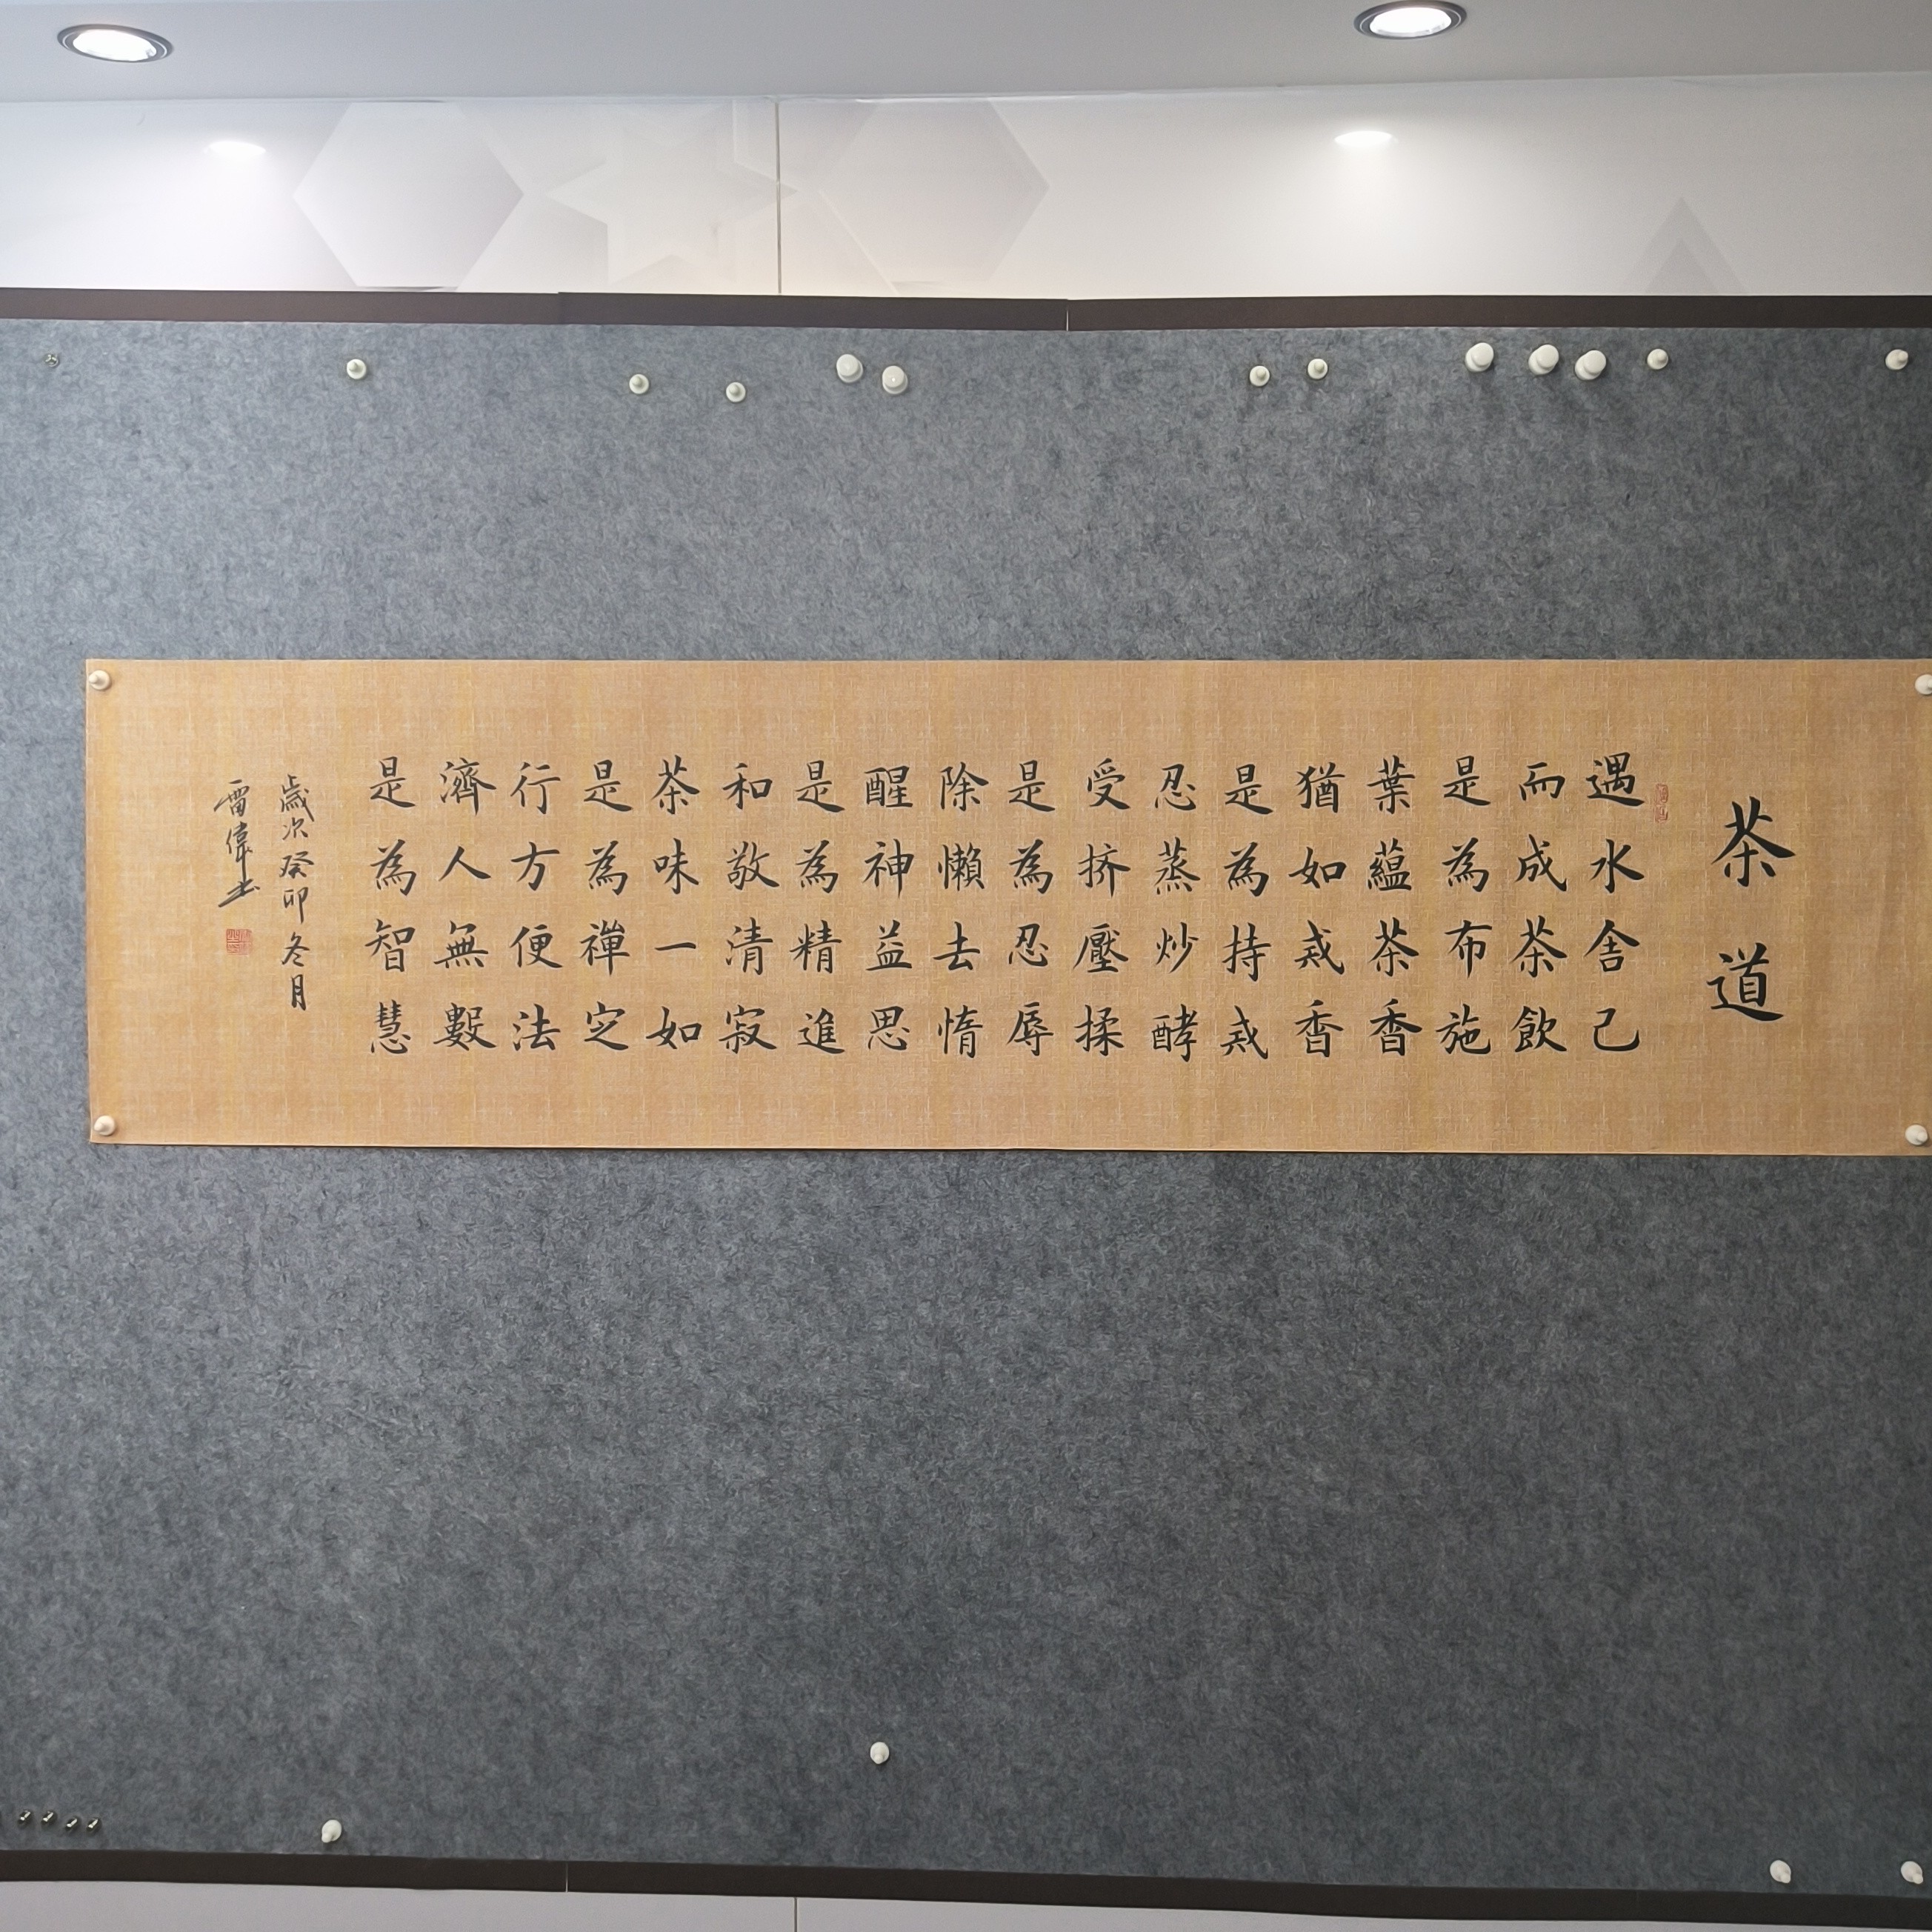 茶道
遇水舍己
而成茶飲
是為布施
葉蘊茶香
猶如戒香
是為持戒
忍蒸炒酵
受挤壓揉
是為忍辱
除懶去惰
醒神益思
是為精進
和敬清寂
茶味一如
是為禪定
行方便法
濟人無數
是為智慧
歲次癸卯冬月
雷偉書